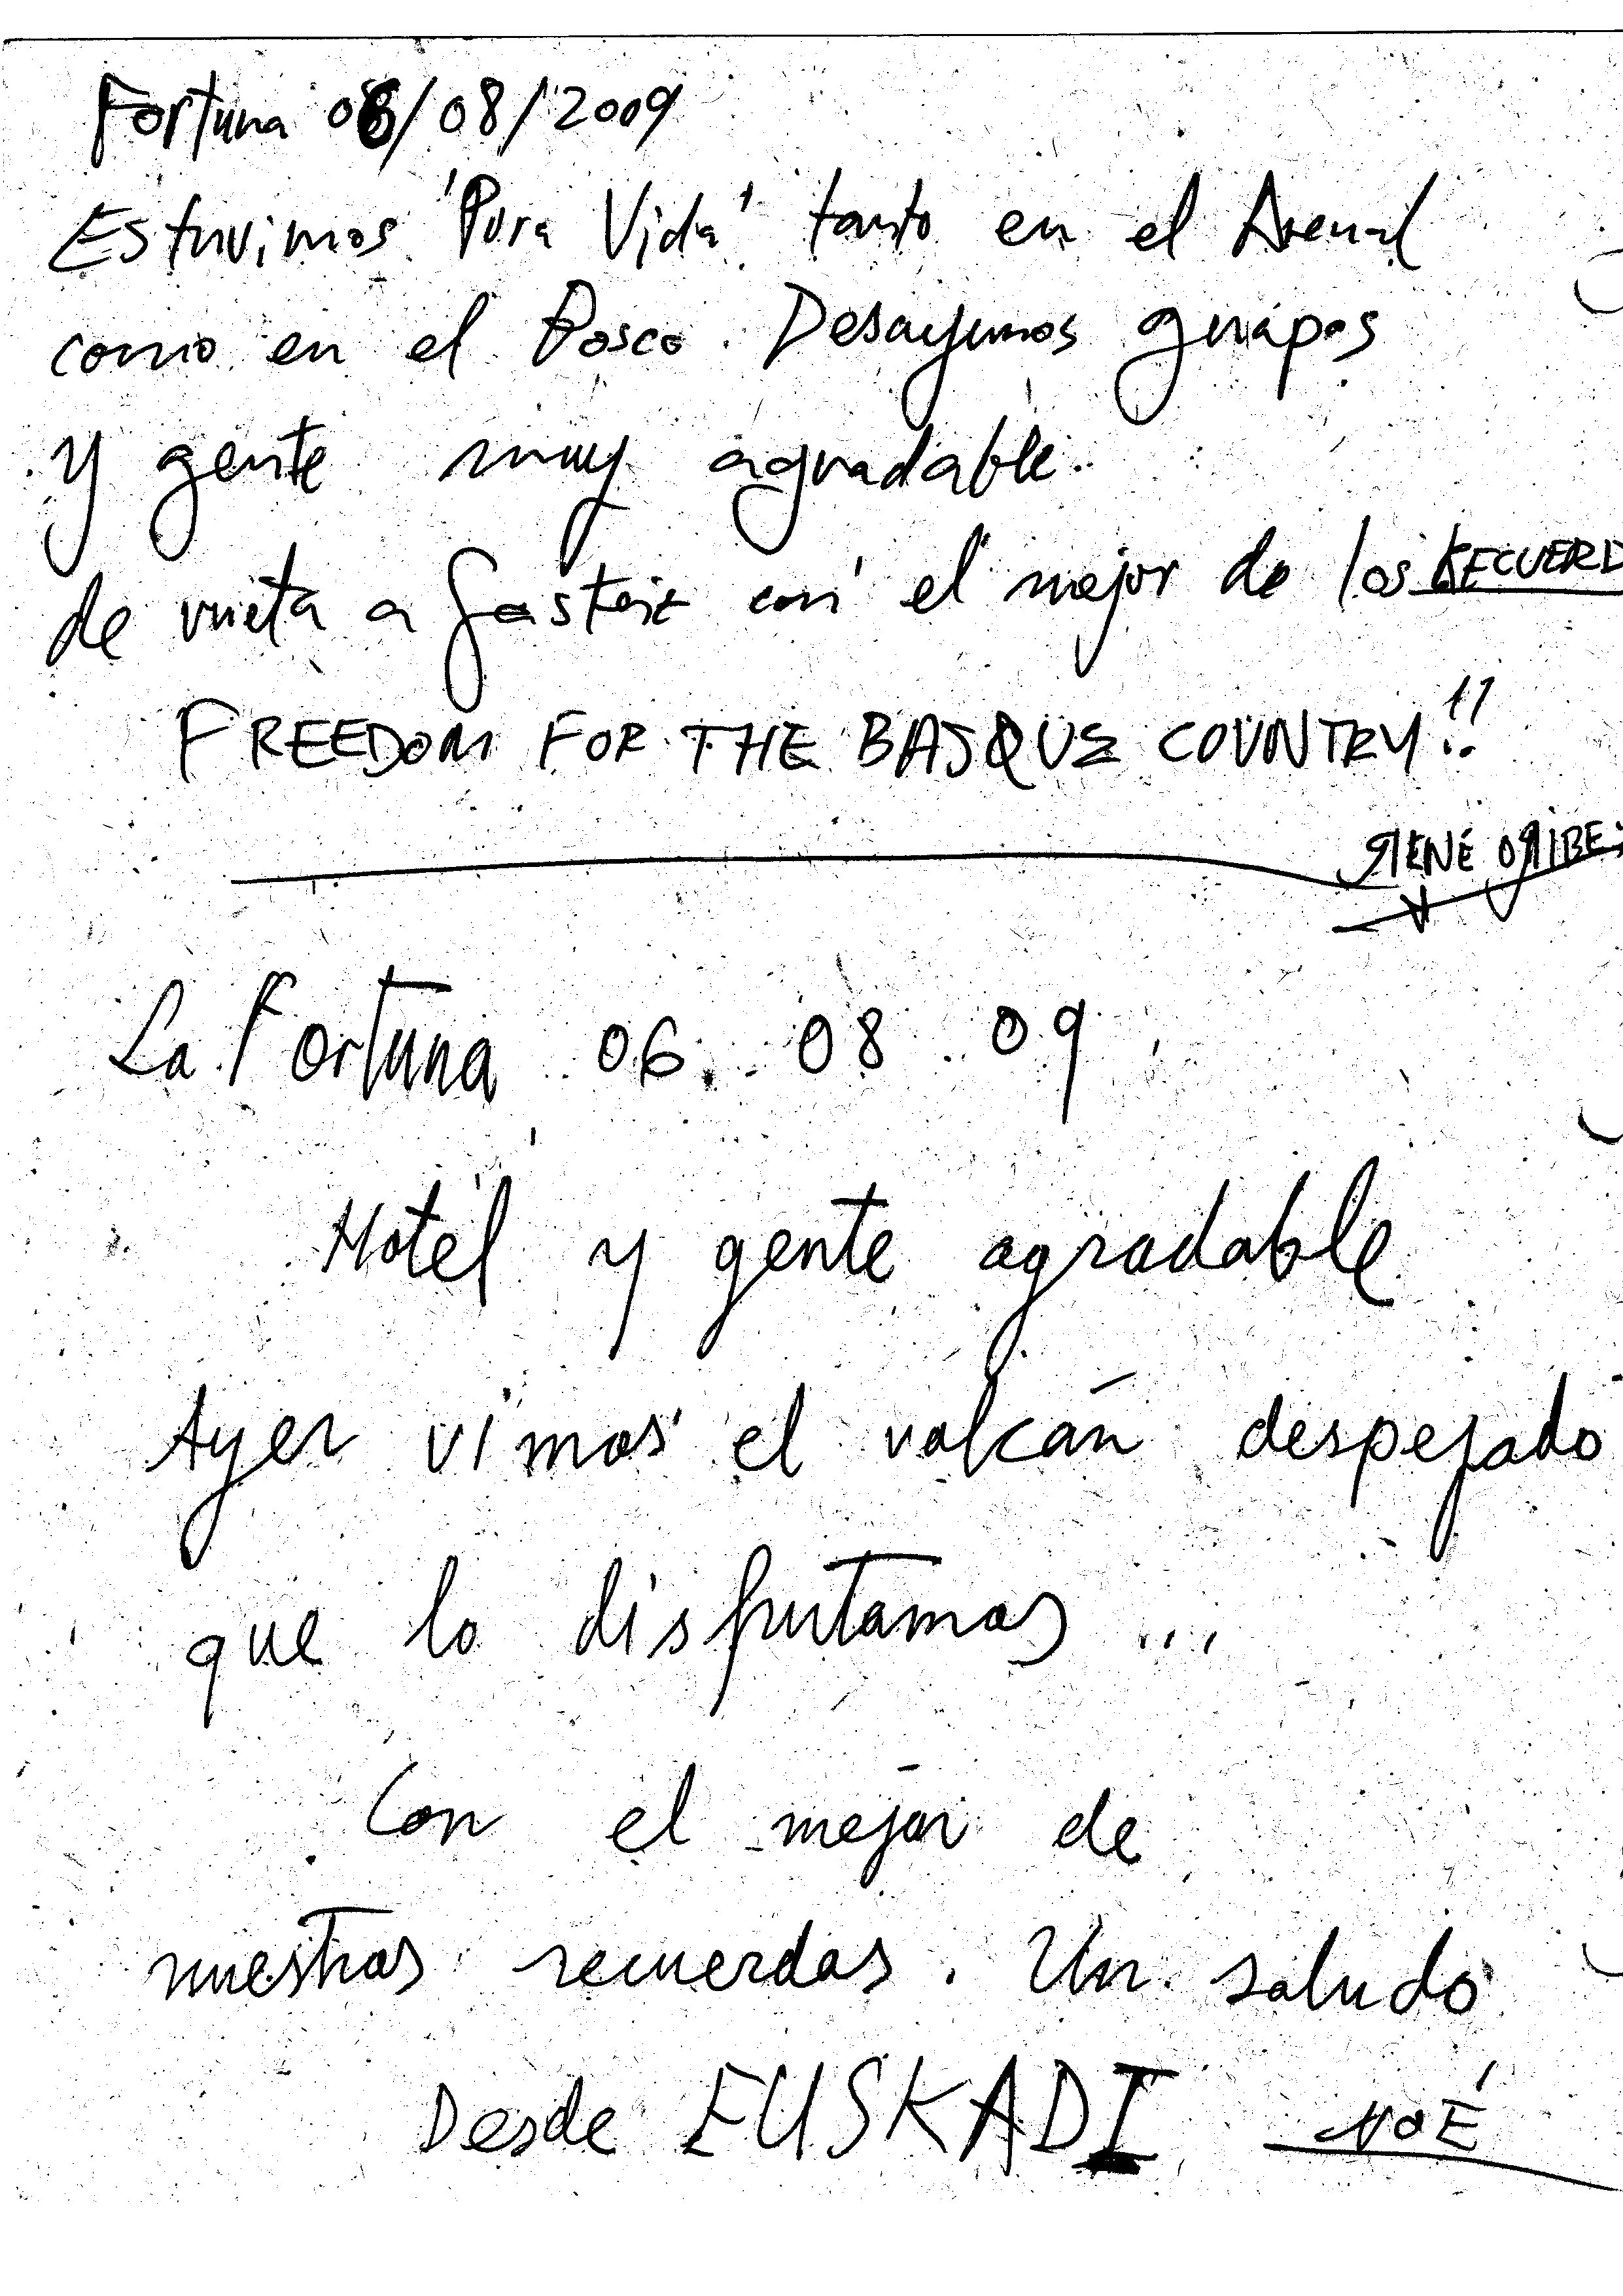 Fortuna 06/08/2009
Estuvimos 'Pura Vida' tanto en el Arenal
como en el Bosco. Desayunos guapos
y gente muy agradable.
de vueta a Gasteiz con el mejor de los RECUERD
FREEDOM FOR THE BASQUE COUNTRY!!
RENÉ ORIBE
La Fortuna 06. 08. 09
Hotel y gente agradable
Ayer vimos el volcán despejado
que lo disfrutamos ...
Con el mejor de
nuestros recuerdos. Un saludo
Desde EUSKADI NOÉ